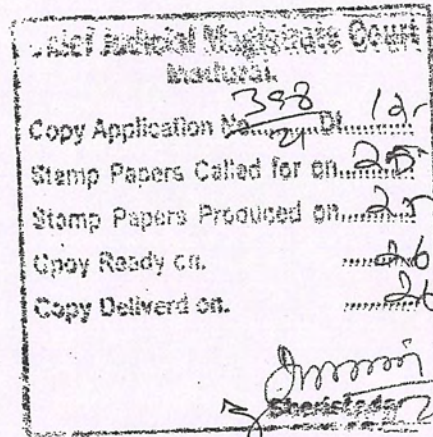 Chief Judicial Magistrate Court
Madurai.
Copy Application No. 398/21 Dt. 12
Stamp Papers Called for on 25
Stamp Papers Produced on 25
Copy Ready on. 26
Copy Deliverd on. 26
Sheristadar